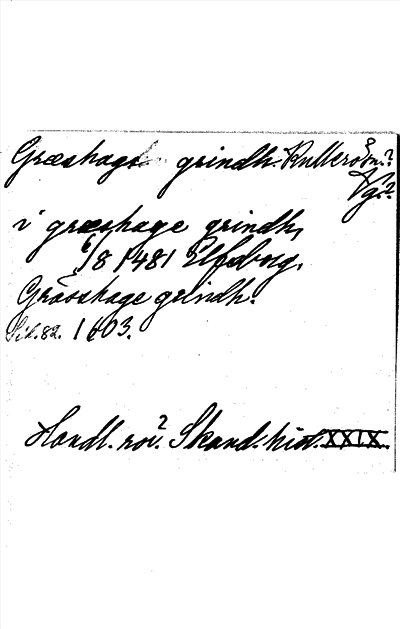 Græshags grindh. Kulleröön?
Vg?
i græshage grindh,
6/8 1481 Elfsborg.
Grässhage grindh.
Sid. 82. 1603.
Handl. rör. Skand. hist. XXIX.